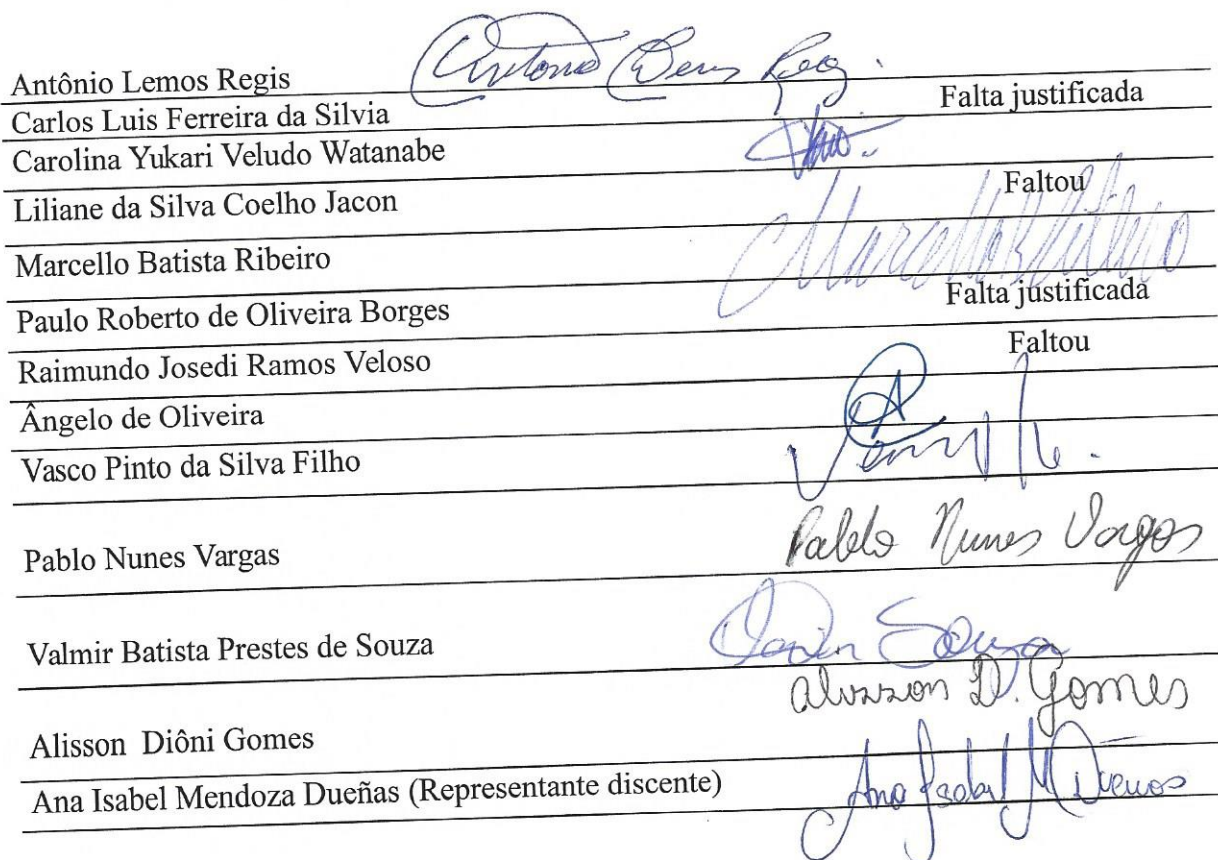 Antônio Lemos Regis
Carlos Luis Ferreira da Silvia Falta justificada
Carolina Yukari Veludo Watanabe
Liliane da Silva Coelho Jacon Faltou
Marcello Batista Ribeiro Marcello B Ribeiro
Paulo Roberto de Oliveira Borges Falta justificada
Raimundo Josedi Ramos Veloso Faltou
Ângelo de Oliveira
Vasco Pinto da Silva Filho
Pablo Nunes Vargas Pablo Nunes Vargas
Valmir Batista Prestes de Souza Souza
Alisson Diôni Gomes Alisson D. Gomes
Ana Isabel Mendoza Dueñas (Representante discente) Ana Isabel M Dueñas